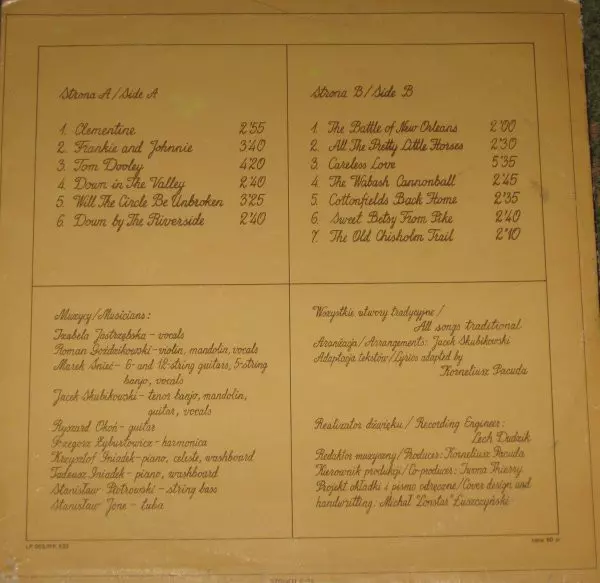 Strona A/Side A
1. Clementine 2'55
2. Frankie and Johnnie 3'40
3. Tom Dooley 4'20
4. Down in The Valley 2'40
5. Will The Circle Be Unbroken 3'25
6. Down by The Riverside 2'40
Strona B/Side B
1. The Battle of New Orleans 2'00
2. All The Pretty Little Horses 2'30
3. Careless Love 5'35
4. The Wabash Cannonball 2'45
5. Cottonfields Back Home 2'35
6. Sweet Betsy From Pike 2'40
7. The Old Chisholm Trail 2'10
Muzycy/Musicians:
Izabela Jastrzębska - vocals
Roman Goździkowski - violin, mandolin, vocals
Marek Śnieć - 6- and 12-string guitars, 5-string
banjo, vocals
Jacek Skubikowski - tenor banjo, mandolin,
guitar, vocals
Ryszard Okoń - guitar
Grzegorz Łaburtowicz - harmonica
Krzysztof Gniadek - piano, celeste, washboard
Tadeusz Gniadek - piano, washboard
Stanisław Piotrowski - string bass
Stanisław Jone - tuba
Wszystkie utwory tradycyjne/
All songs traditional
Aranżacja/Arrangements: Jacek Skubikowski
Adaptacja tekstów/Lyrics adapted by
Korneliusz Pacuda
Realizator dźwięku/Recording Engineer:
Lech Dudzik
Redaktor muzyczny/Producer: Korneliusz Pacuda
Kierownik produkcji/Co-producer: Iwona Thierry
Projekt okładki i pismo odręczne/Cover design and
handwritting: Michał "Lonstar" Łuszczyński